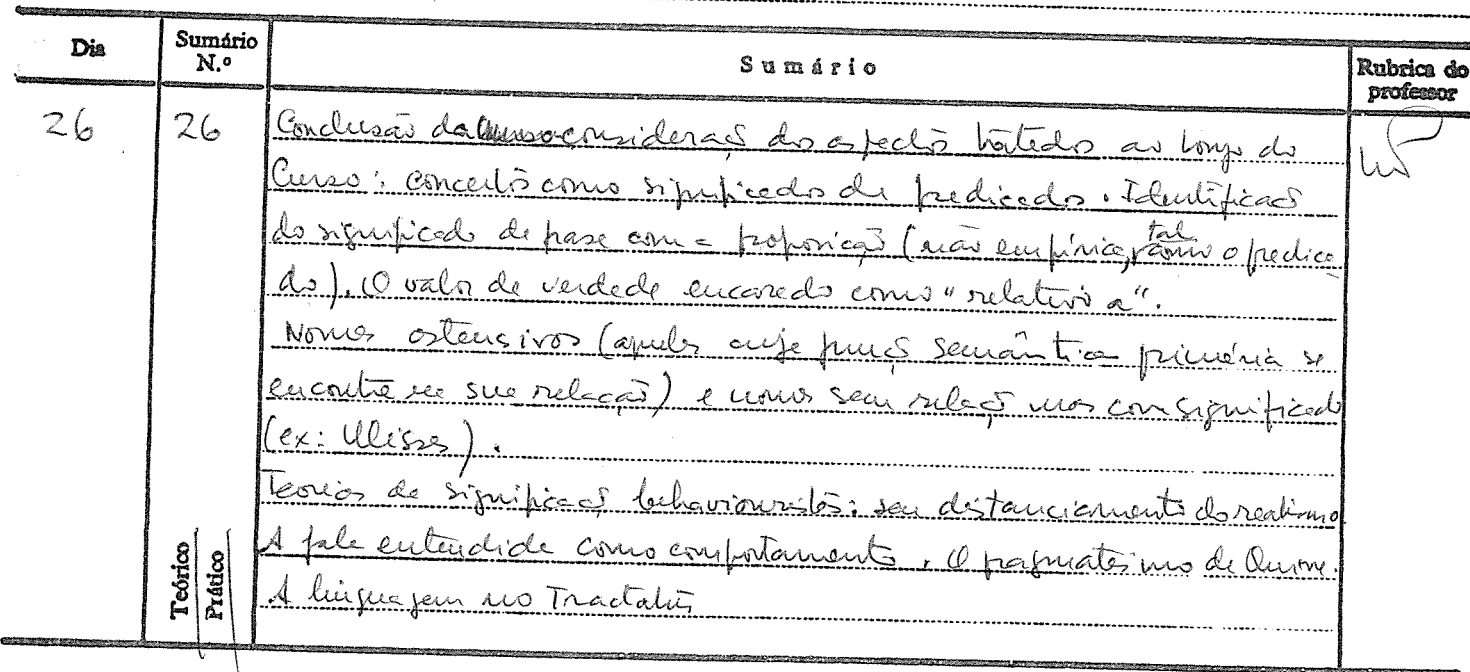 Dia
Sumário N.º
Sumário
Rubrica do professor
26
26
Conclusão da consideração dos aspectos tratados ao longo do
Curso: conceitos como significados de predicados. Identificação
do significado de frase com a proposição (não empírica, tal como o predica
do). O valor de verdade encarado como "relativo a".
Nomes ostensivos (aqueles cuja função semântica primária se
encontra na sua relação) e nomes sem relação mas com significado
(ex: Ulisses).
Teorias de significação behaviouristas: seu distanciamento do realismo
A fala entendida como comportamento. O pragmatismo de Quine.
A linguagem no Tractatus
Teórico
Prático